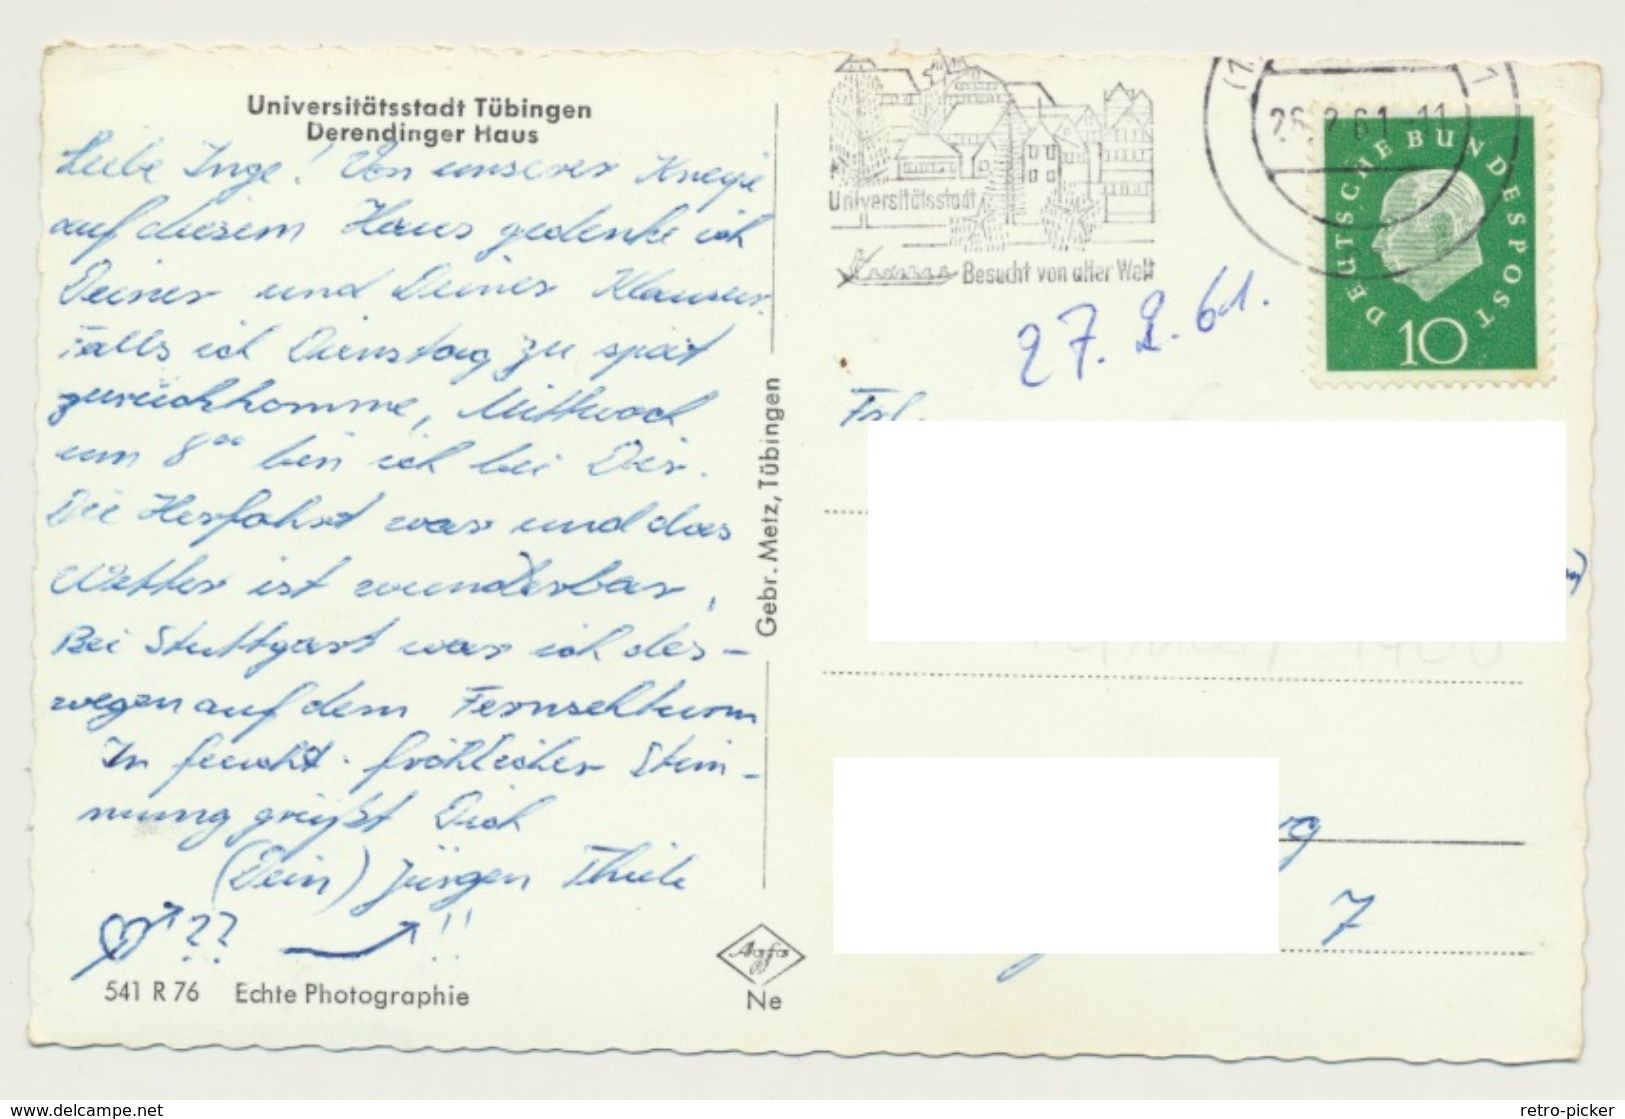 Universitätsstadt Tübingen
Derendinger Haus
Liebe Inge! Von unserer Kneipe
auf diesem Haus gedenke ich
Deiner und Deiner Klausur.
Falls ich Dienstag zu spät
zurückkomme, Mittwoch
um 8⁰⁰ bin ich bei Dir.
Die Herfahrt war und das
Wetter ist wunderbar,
Bei Stuttgart war ich des-
wegen auf dem Fernsehturm
In feucht-fröhlicher Stim-
mung grüßt Dich
(Dein) Jürgen Thiele
?? !!
541 R 76 Echte Photographie
Gebr. Metz, Tübingen
Agfa
Ne
Universitätsstadt
Besucht von aller Welt
26.2.61-11
DEUTSCHE BUNDESPOST
10
27. 2. 61.
Frl.
g
7
www.delcampe.net
retro-picker